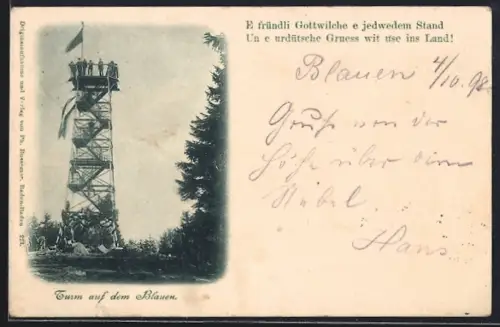 E fründli Gottwilche e jedwedem Stand
Un e urdütsche Gruess wit use ins Land!
Blauen 4/10.98.
Gruß von der
Höhe über dem
Nebel
Hans
Turm auf dem Blauen.
Originalaufnahme und Verlag von Ph. Baden-Baden 221.